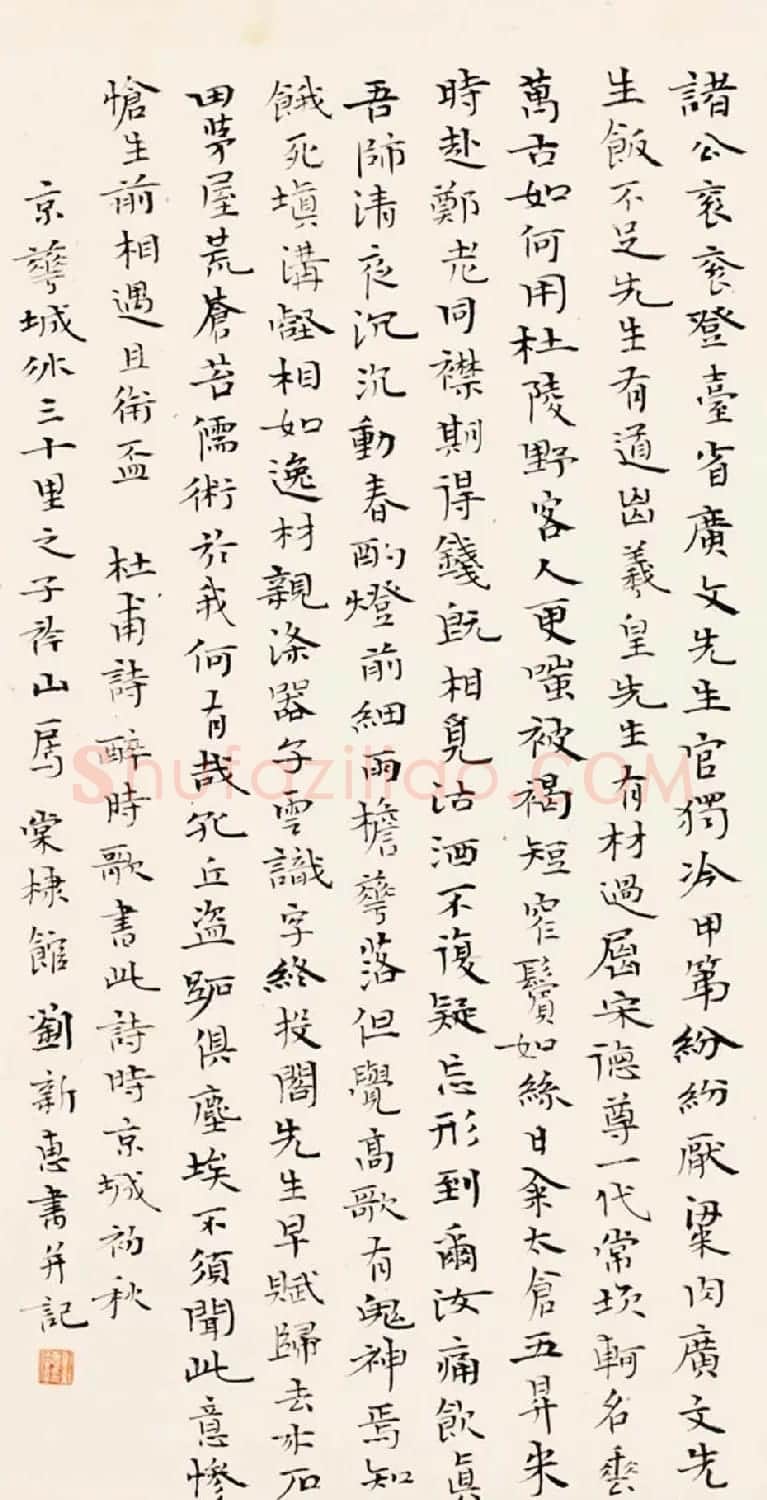 諸公袞袞登臺省廣文先生官獨冷甲第紛紛厭粱肉廣文先
生飯不足先生有道出羲皇先生有材過屈宋德尊一代常坎軻名垂
萬古如何用杜陵野客人更嗤被褐短窄鬢如絲日籴太倉五昇米
時赴鄭老同襟期得錢既相覓沽酒不復疑忘形到爾汝痛飲眞
吾師清夜沉沉動春酌燈前細雨檐華落但覺高歌有鬼神焉知
餓死填溝壑相如逸材親滌器子雲識字終投閣先生早賦歸去來石
田茅屋荒蒼苔儒術於我何有哉孔丘盜跖俱塵埃不須聞此意慘
愴生前相遇且銜盃 杜甫詩醉時歌書此詩時京城初秋
京華城外三十里之子山 棠棣館 劉新惠書并記
Shufaziliao.COM